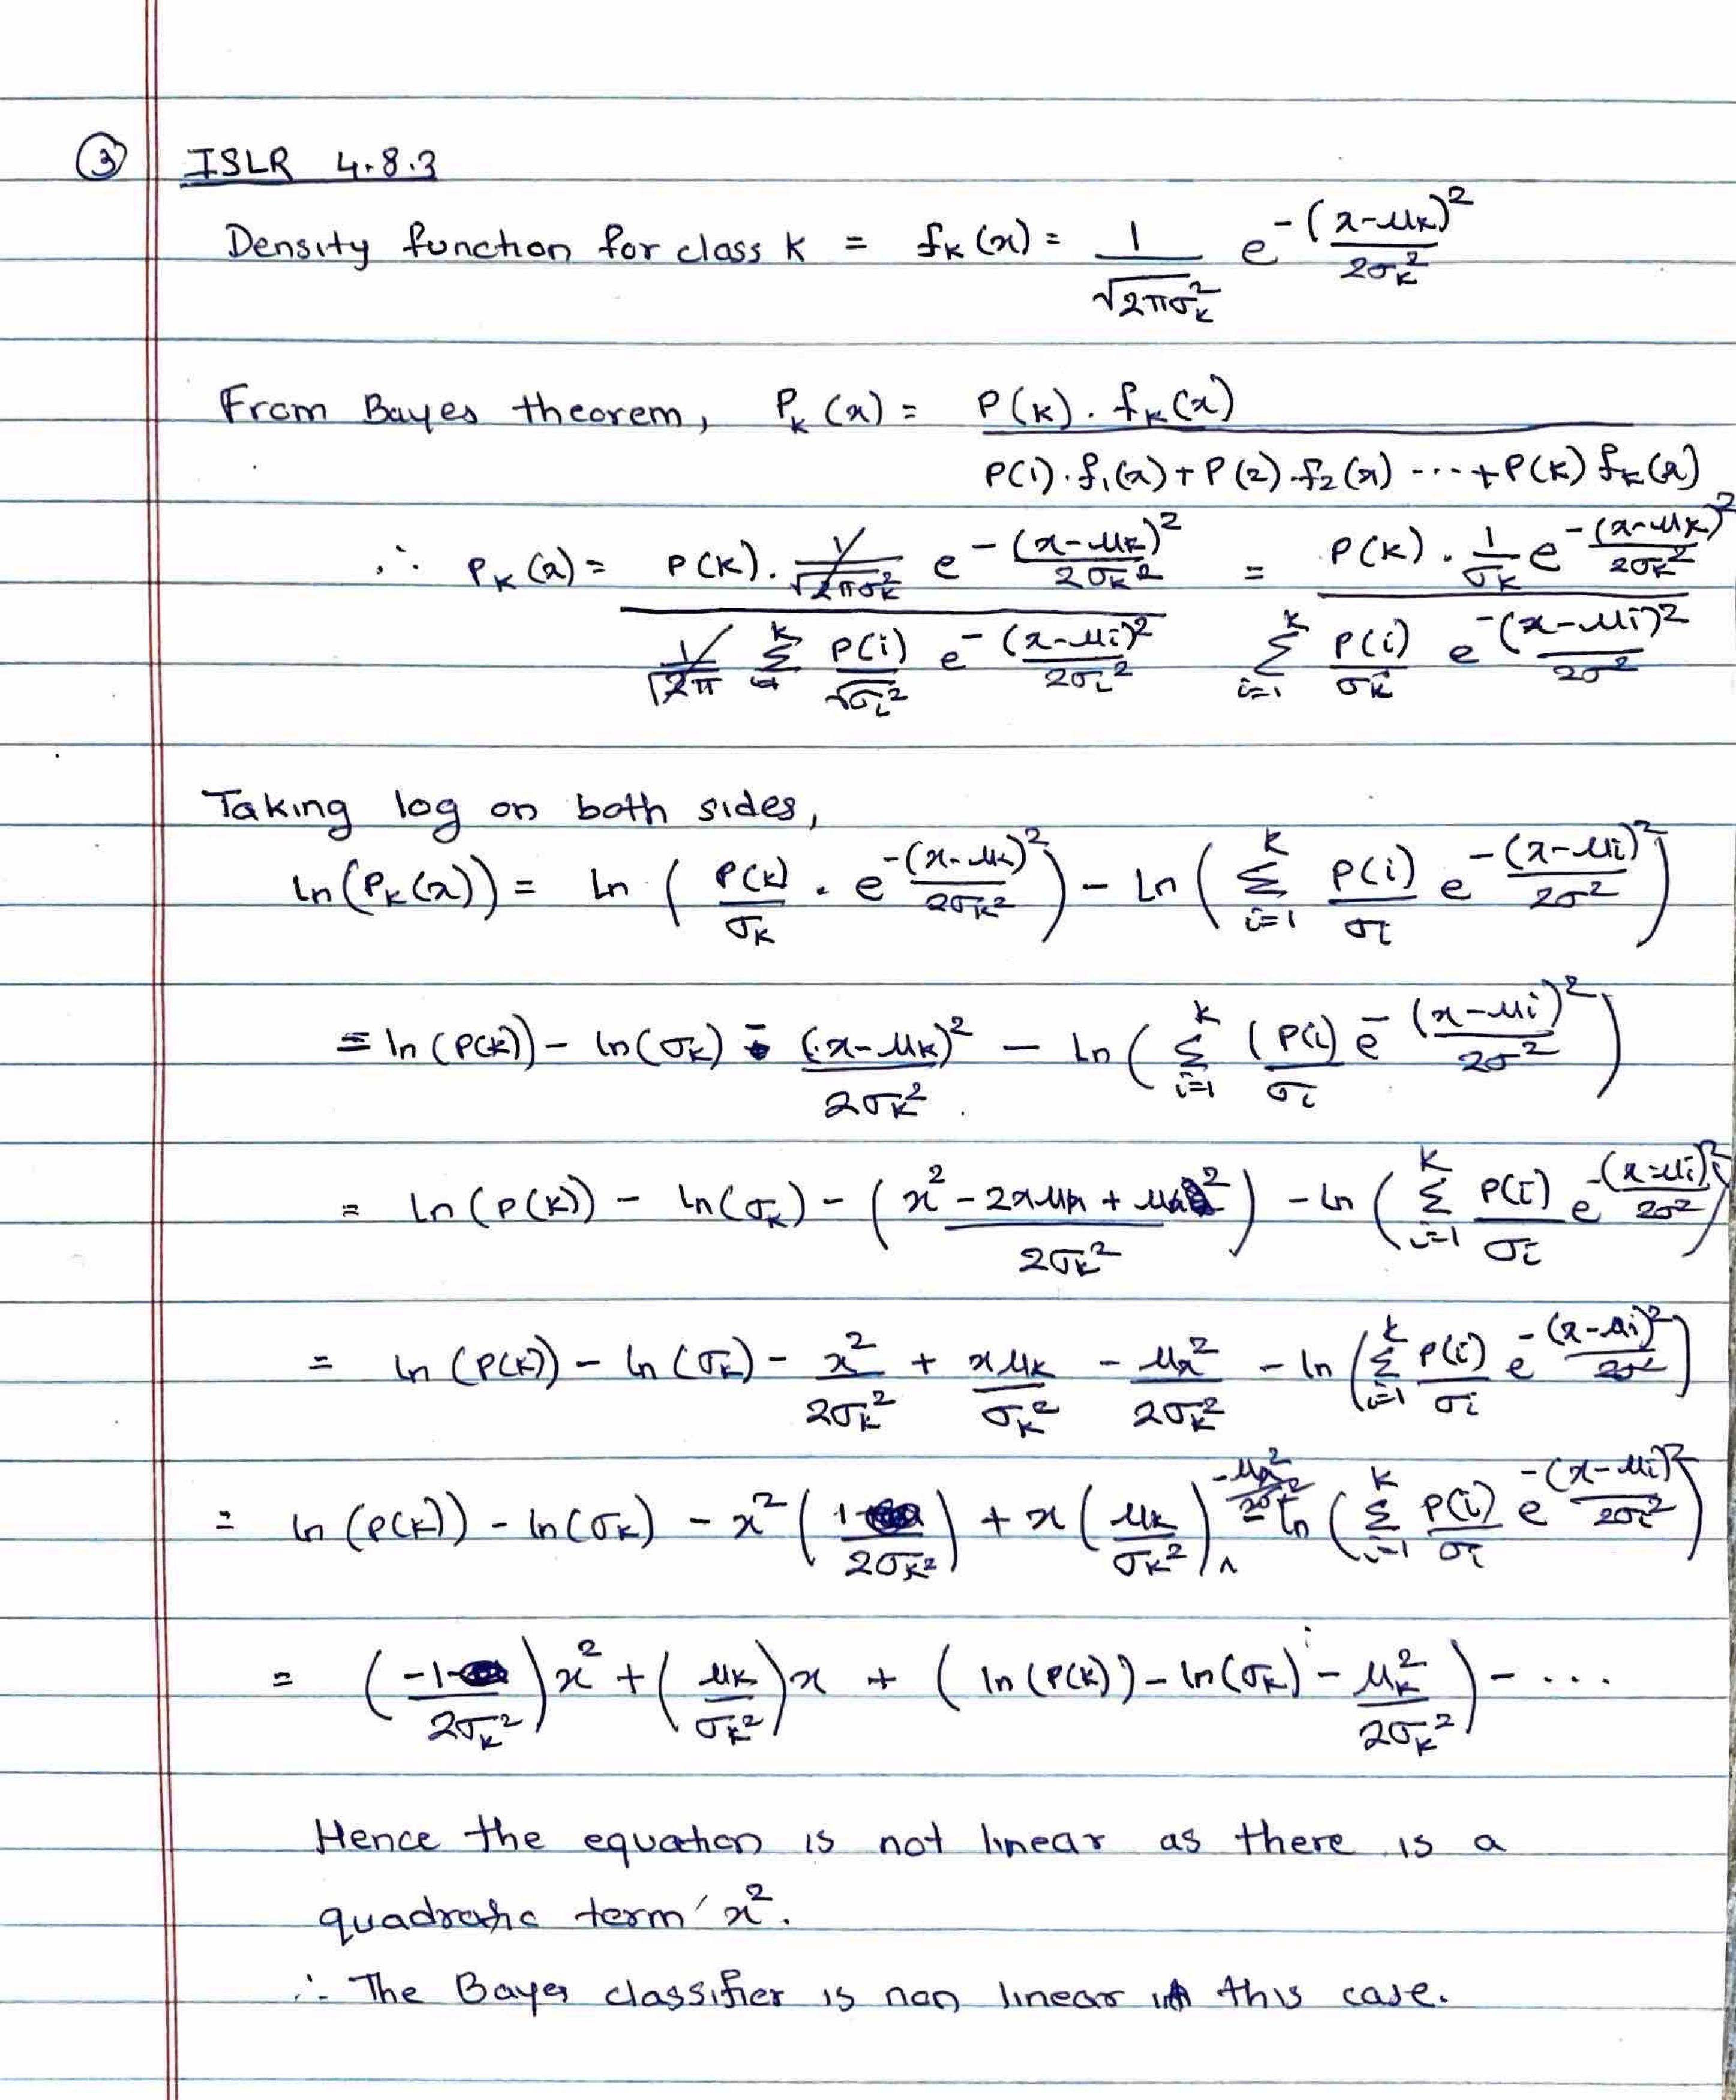 ③ ISLR 4.8.3
Density function for class k = fₖ(x) = 1/√(2πσₖ²) e^(-(x-μₖ)²/2σₖ²)
From Bayes theorem, Pₖ(x) = P(k). fₖ(x) / P(1).f₁(x) + P(2).f₂(x) ... + P(k) fₖ(x)
∴ Pₖ(x) = P(k). 1/√(2πσₖ²) e^(-(x-μₖ)²/2σₖ²) / 1/√2π Σᵏ P(i)/√σᵢ² e^(-(x-μᵢ)²/2σᵢ²) = P(k). 1/σₖ e^(-(x-μₖ)²/2σₖ²) / Σᵏᵢ₌₁ P(i)/σₖ e^(-(x-μᵢ)²/2σ²)
Taking log on both sides,
ln(Pₖ(x)) = ln (P(k)/σₖ . e^(-(x-μₖ)²/2σₖ²)) - ln (Σᵏᵢ₌₁ P(i)/σᵢ e^(-(x-μᵢ)²/2σ²))
= ln(P(k)) - ln(σₖ) - (x-μₖ)²/2σₖ² - ln (Σᵏᵢ₌₁ (P(i)/σᵢ e^(-(x-μᵢ)²/2σ²))
= ln(P(k)) - ln(σₖ) - (x² - 2xμₖ + μₖ²/2σₖ²) - ln (Σᵏᵢ₌₁ P(i)/σᵢ e^(-(x-μᵢ)²/2σ²))
= ln(P(k)) - ln(σₖ) - x²/2σₖ² + xμₖ/σₖ² - μₖ²/2σₖ² - ln (Σᵏᵢ₌₁ P(i)/σᵢ e^(-(x-μᵢ)²/2σ²))
= ln(P(k)) - ln(σₖ) - x² (1/2σₖ²) + x (μₖ/σₖ²) - μₖ²/2σₖ² - ln (Σᵏᵢ₌₁ P(i)/σᵢ e^(-(x-μᵢ)²/2σᵢ²))
= (-1/2σₖ²) x² + (μₖ/σₖ²) x + (ln(P(k)) - ln(σₖ) - μₖ²/2σₖ²) - ...
Hence the equation is not linear as there is a
quadratic term x².
∴ The Bayes classifier is non linear in this case.